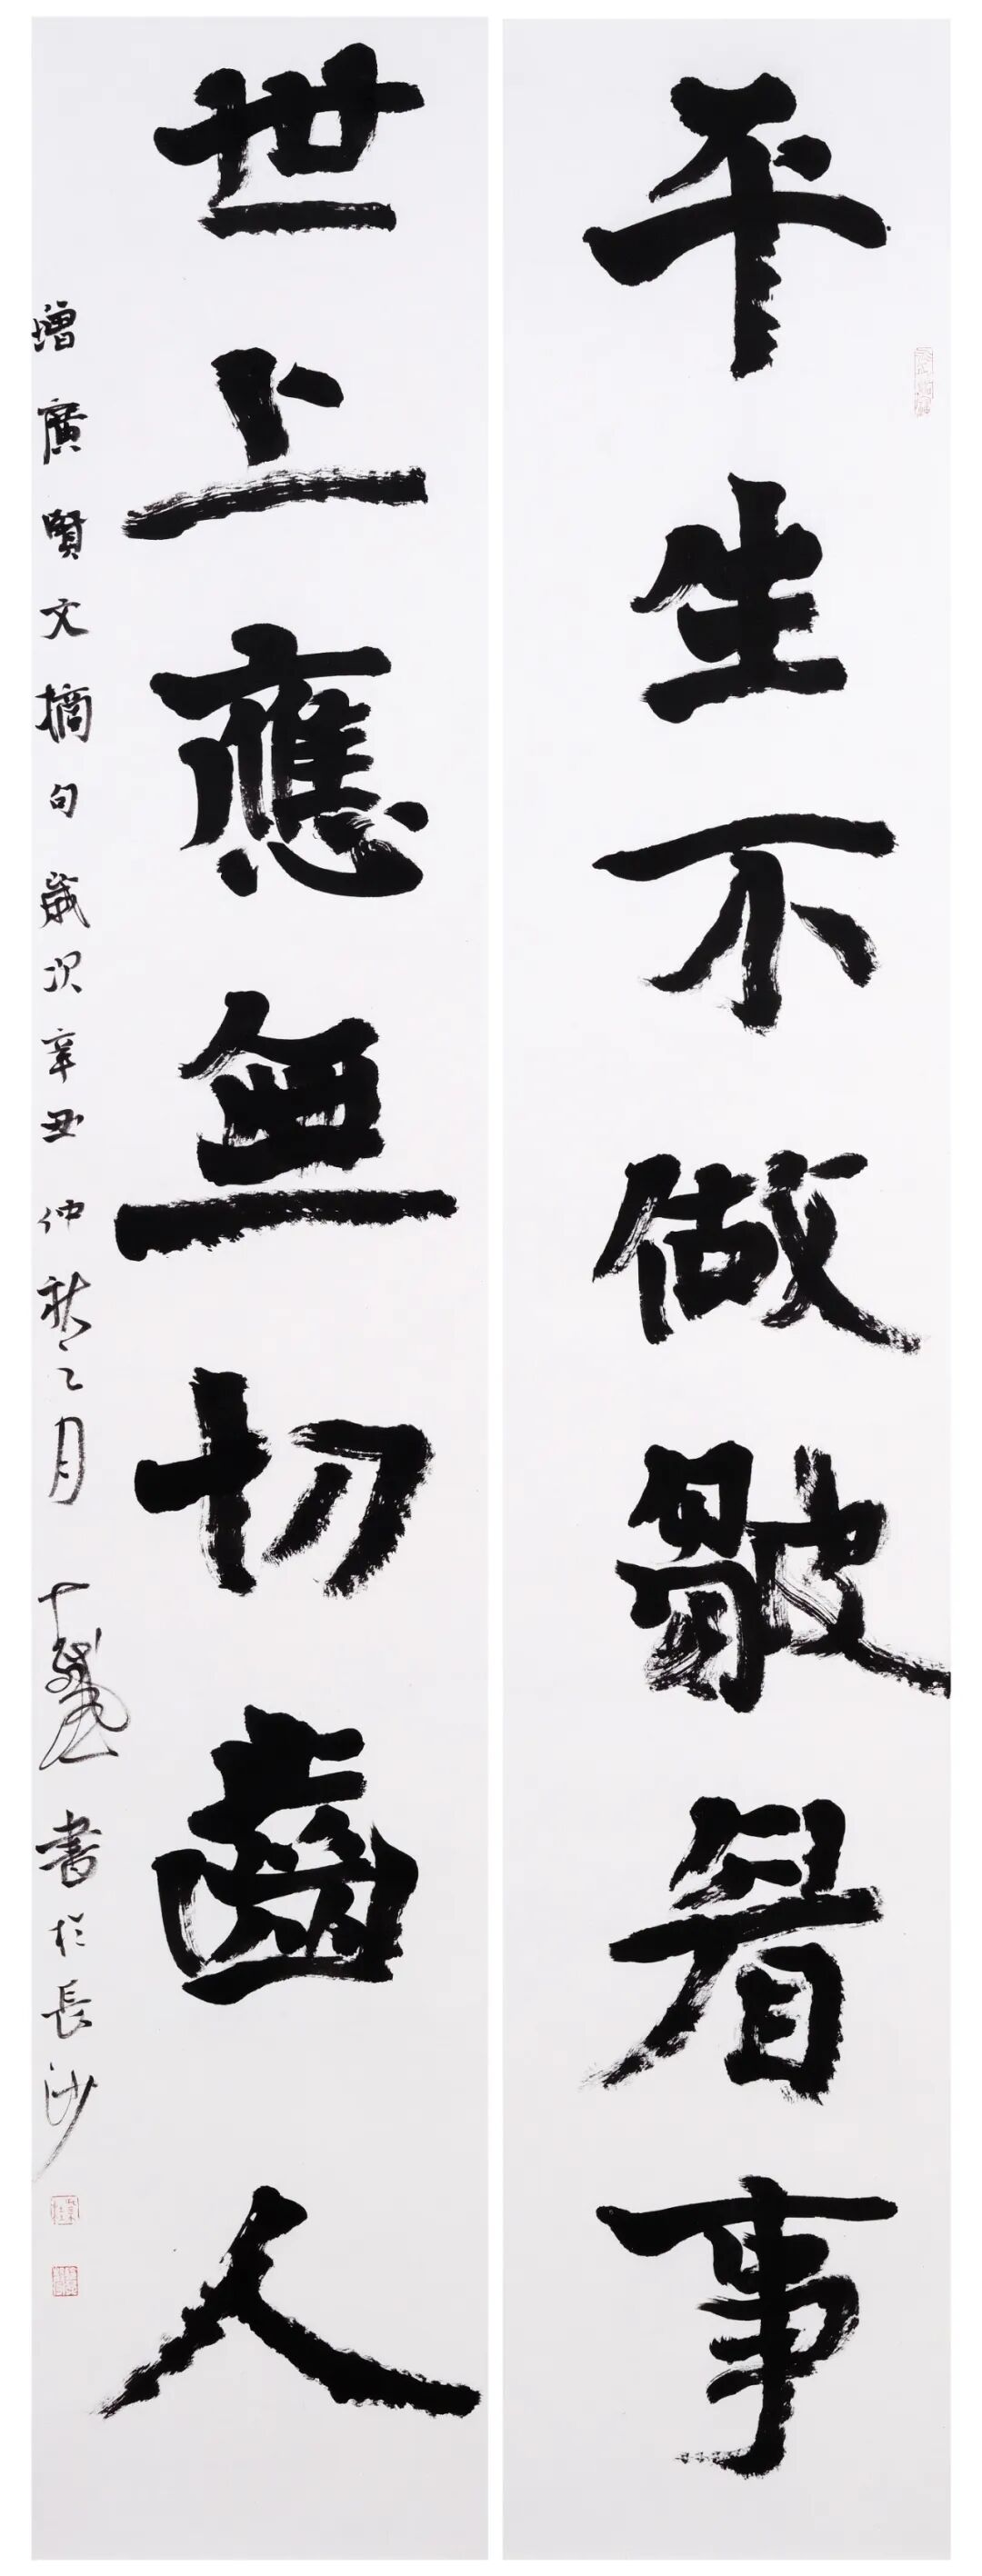 平生不做皺眉事
世上應無切齒人
增廣賢文摘句歲次辛丑仲秋之月
書於長沙